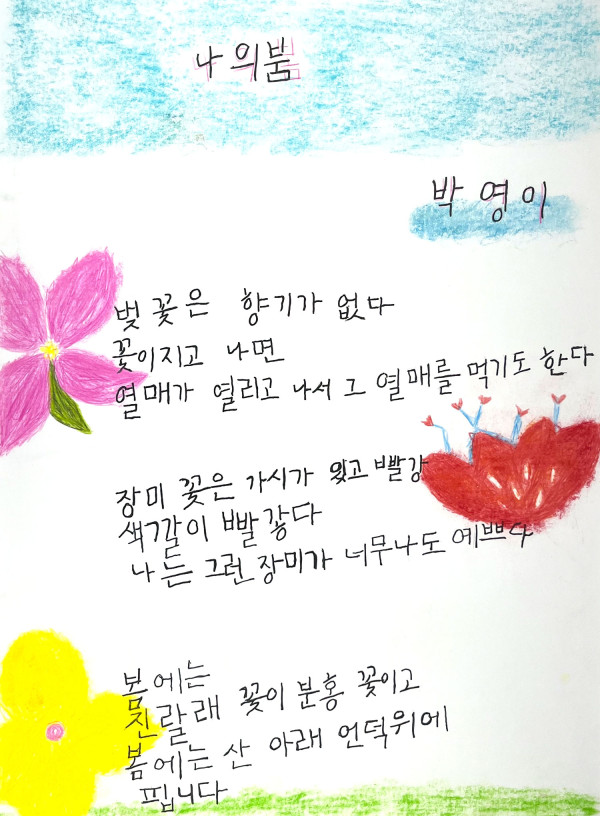 나의붐
박영이
벚꽃은 향기가 없다
꽃이지고 나면
열매가 열리고 나서 그 열매를 먹기도 한다
장미 꽃은 가시가 있고 빨강
색깔이 빨갛다
나는 그런 장미가 너무나도 예쁘다
봄에는
진랄래 꽃이 분홍 꽃이고
봄에는 산 아래 언덕위에
핍니다